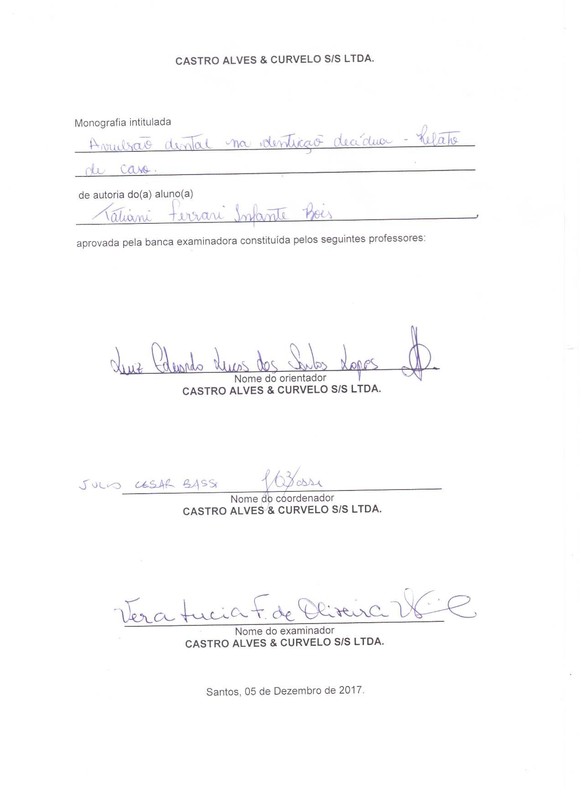 CASTRO ALVES & CURVELO S/S LTDA.
Monografia intitulada
Avulsão dental na dentição decídua - Relato
de caso.
de autoria do(a) aluno(a)
Tatiani Ferrari Infante Bois
aprovada pela banca examinadora constituída pelos seguintes professores:
Luiz Eduardo Lucas dos Santos Lopes
Nome do orientador
CASTRO ALVES & CURVELO S/S LTDA.
JULIO CESAR BASSI
Nome do coordenador
CASTRO ALVES & CURVELO S/S LTDA.
Vera Lucia F. de Oliveira
Nome do examinador
CASTRO ALVES & CURVELO S/S LTDA.
Santos, 05 de Dezembro de 2017.